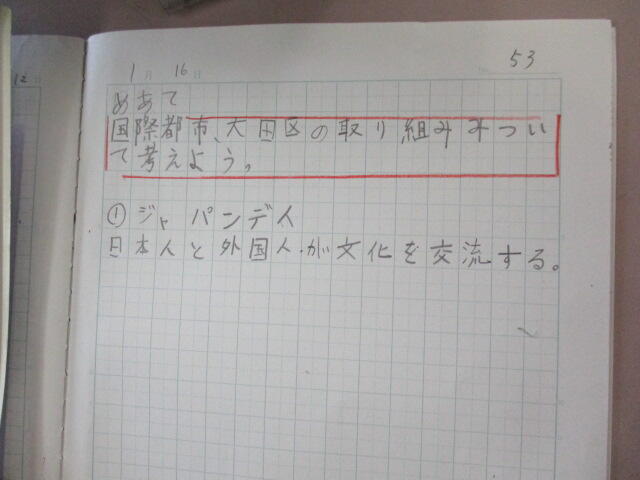 12
1月 16日
53
めあて
国際都市、大田区の取り組みみつい
て考えよう。
① ジャパンデイ
日本人と外国人が文化を交流する。